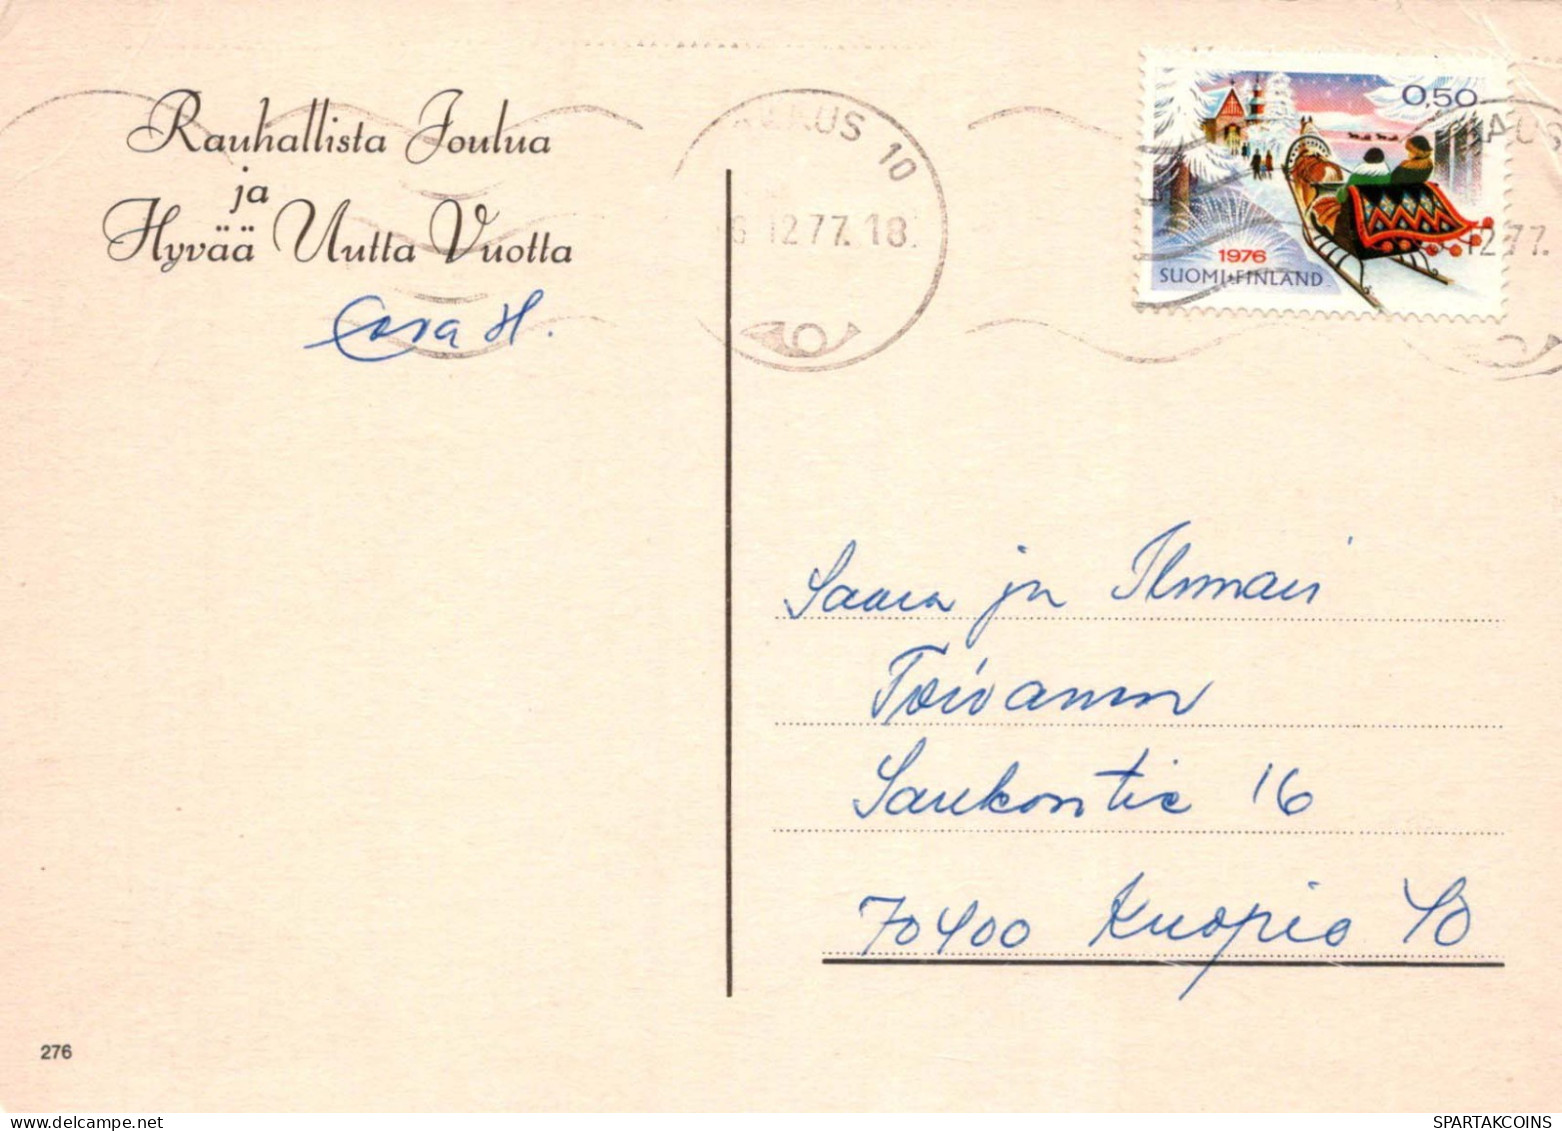 Rauhallista Joulua
ja
Hyvää Uutta Vuotta
Eeva H.
US 10
12.77.18
0,50
1976
SUOMI-FINLAND
AUS
12.77.
Saara ja Ilmari
Toivanen
Saukontie 16
70400 Kuopio 40
276
SPARTAKCOINS